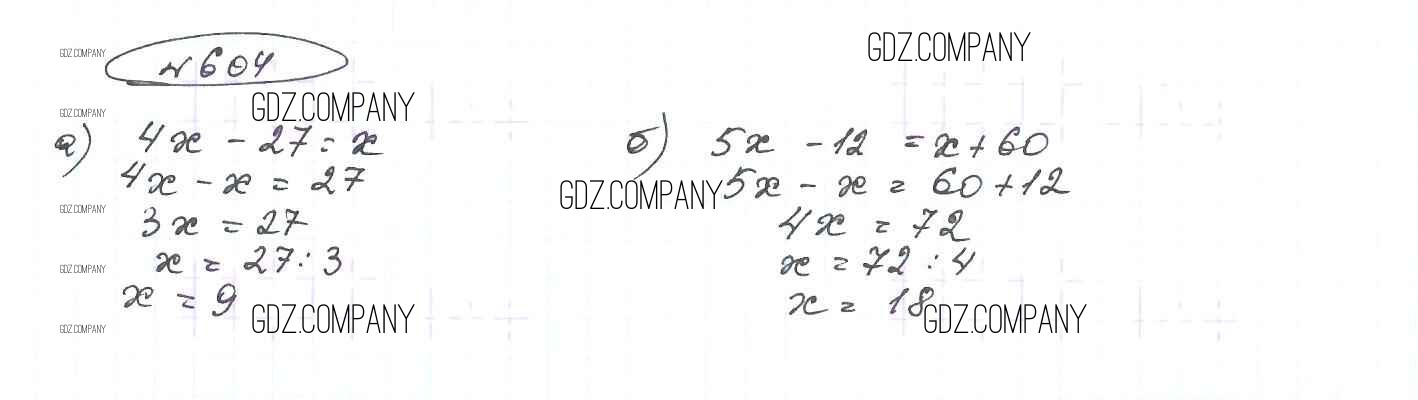 GDZ.COMPANY
№ 604
GDZ.COMPANY
GDZ.COMPANY
GDZ.COMPANY
а) 4x - 27 = x
4x - x = 27
3x = 27
x = 27 : 3
x = 9
GDZ.COMPANY
GDZ.COMPANY
GDZ.COMPANY
GDZ.COMPANY
б) 5x - 12 = x + 60
5x - x = 60 + 12
4x = 72
x = 72 : 4
x = 18
GDZ.COMPANY
GDZ.COMPANY
GDZ.COMPANY